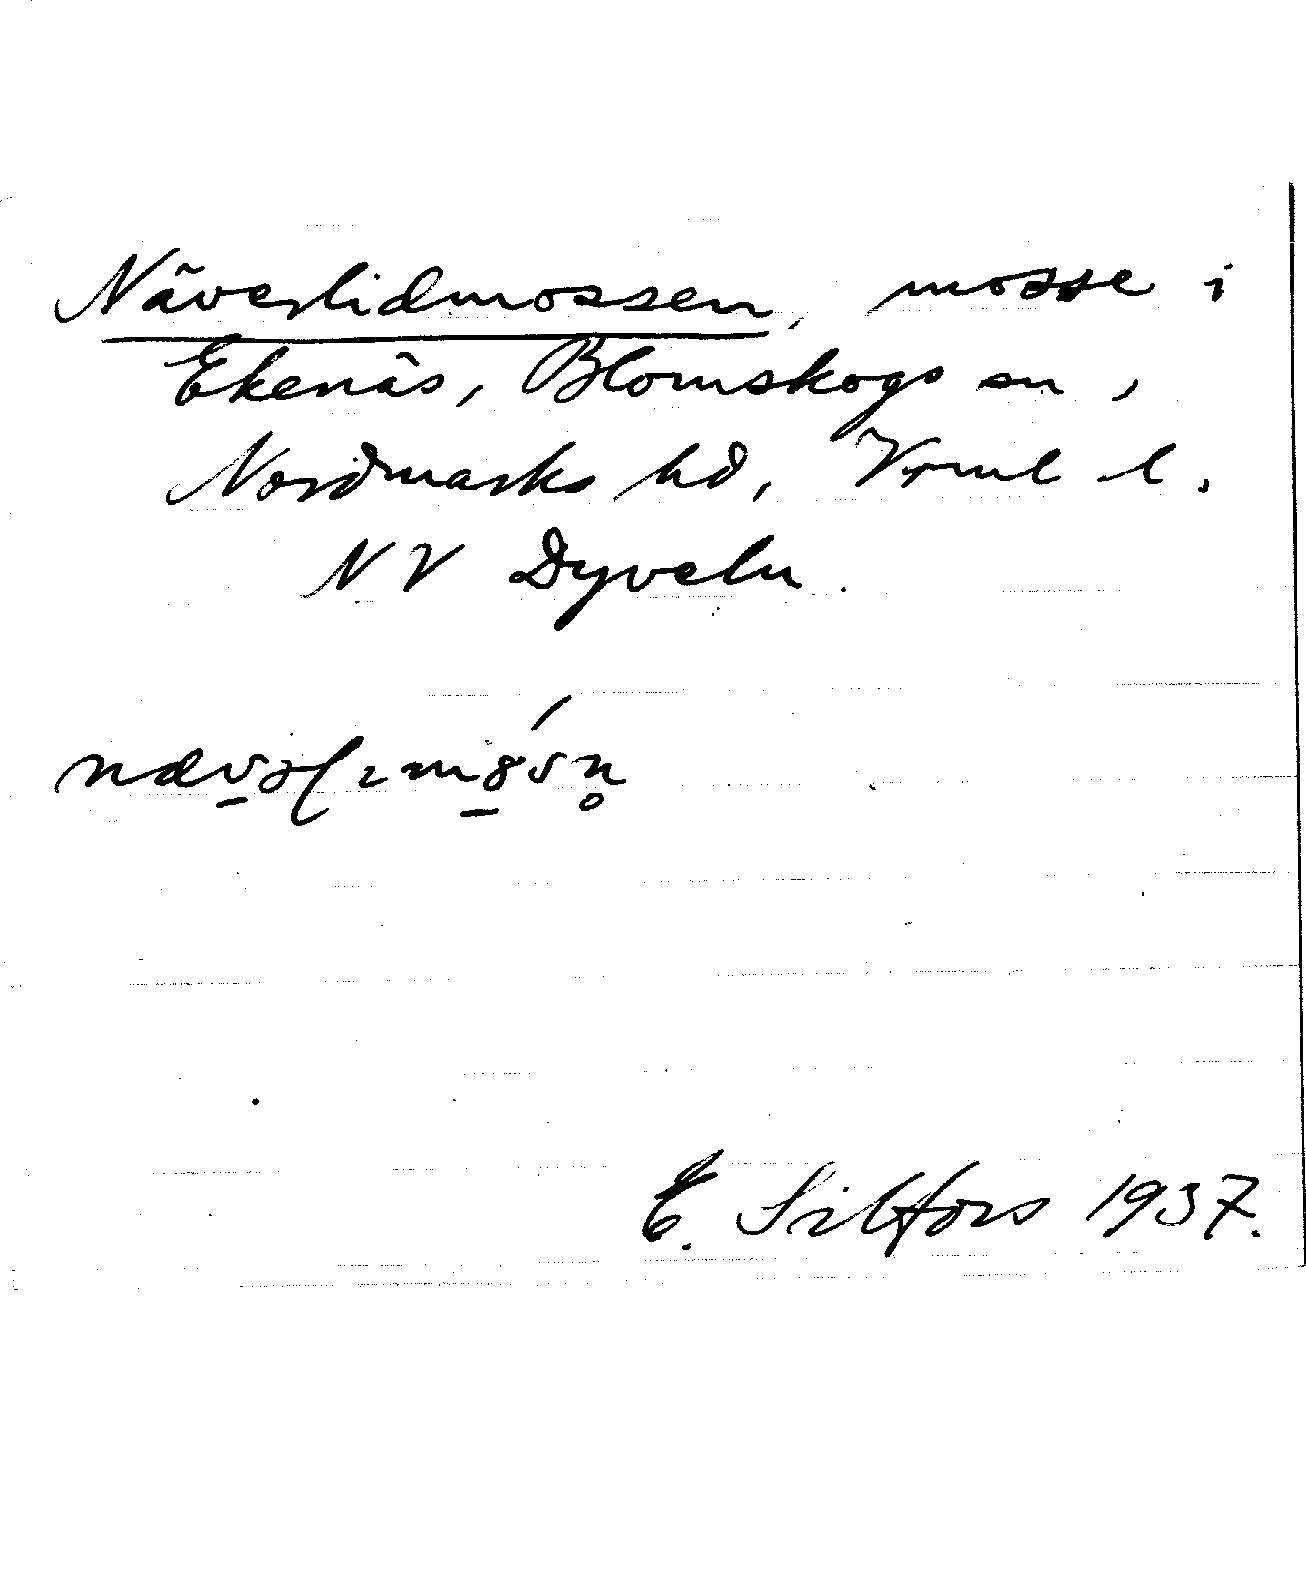 Näverlidmossen, mosse i
Ekenäs, Blomskogs sn,
Nordmarks hd, Vrml l.
NV Dyveln.
E. Silfors 1937.